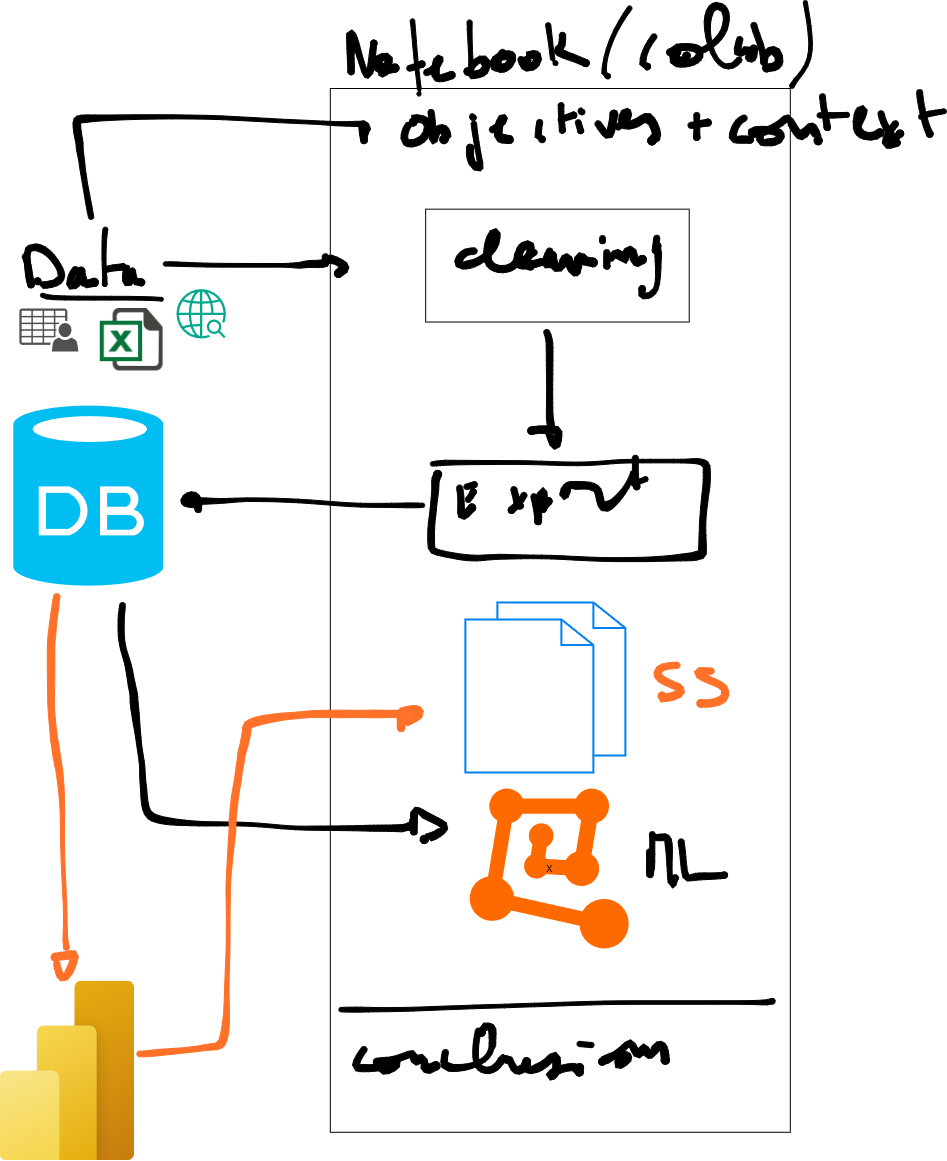 Notebook/(colab)
objectives + context
cleaning
Data
X
Export
DB
SS
ML
x
conclusion